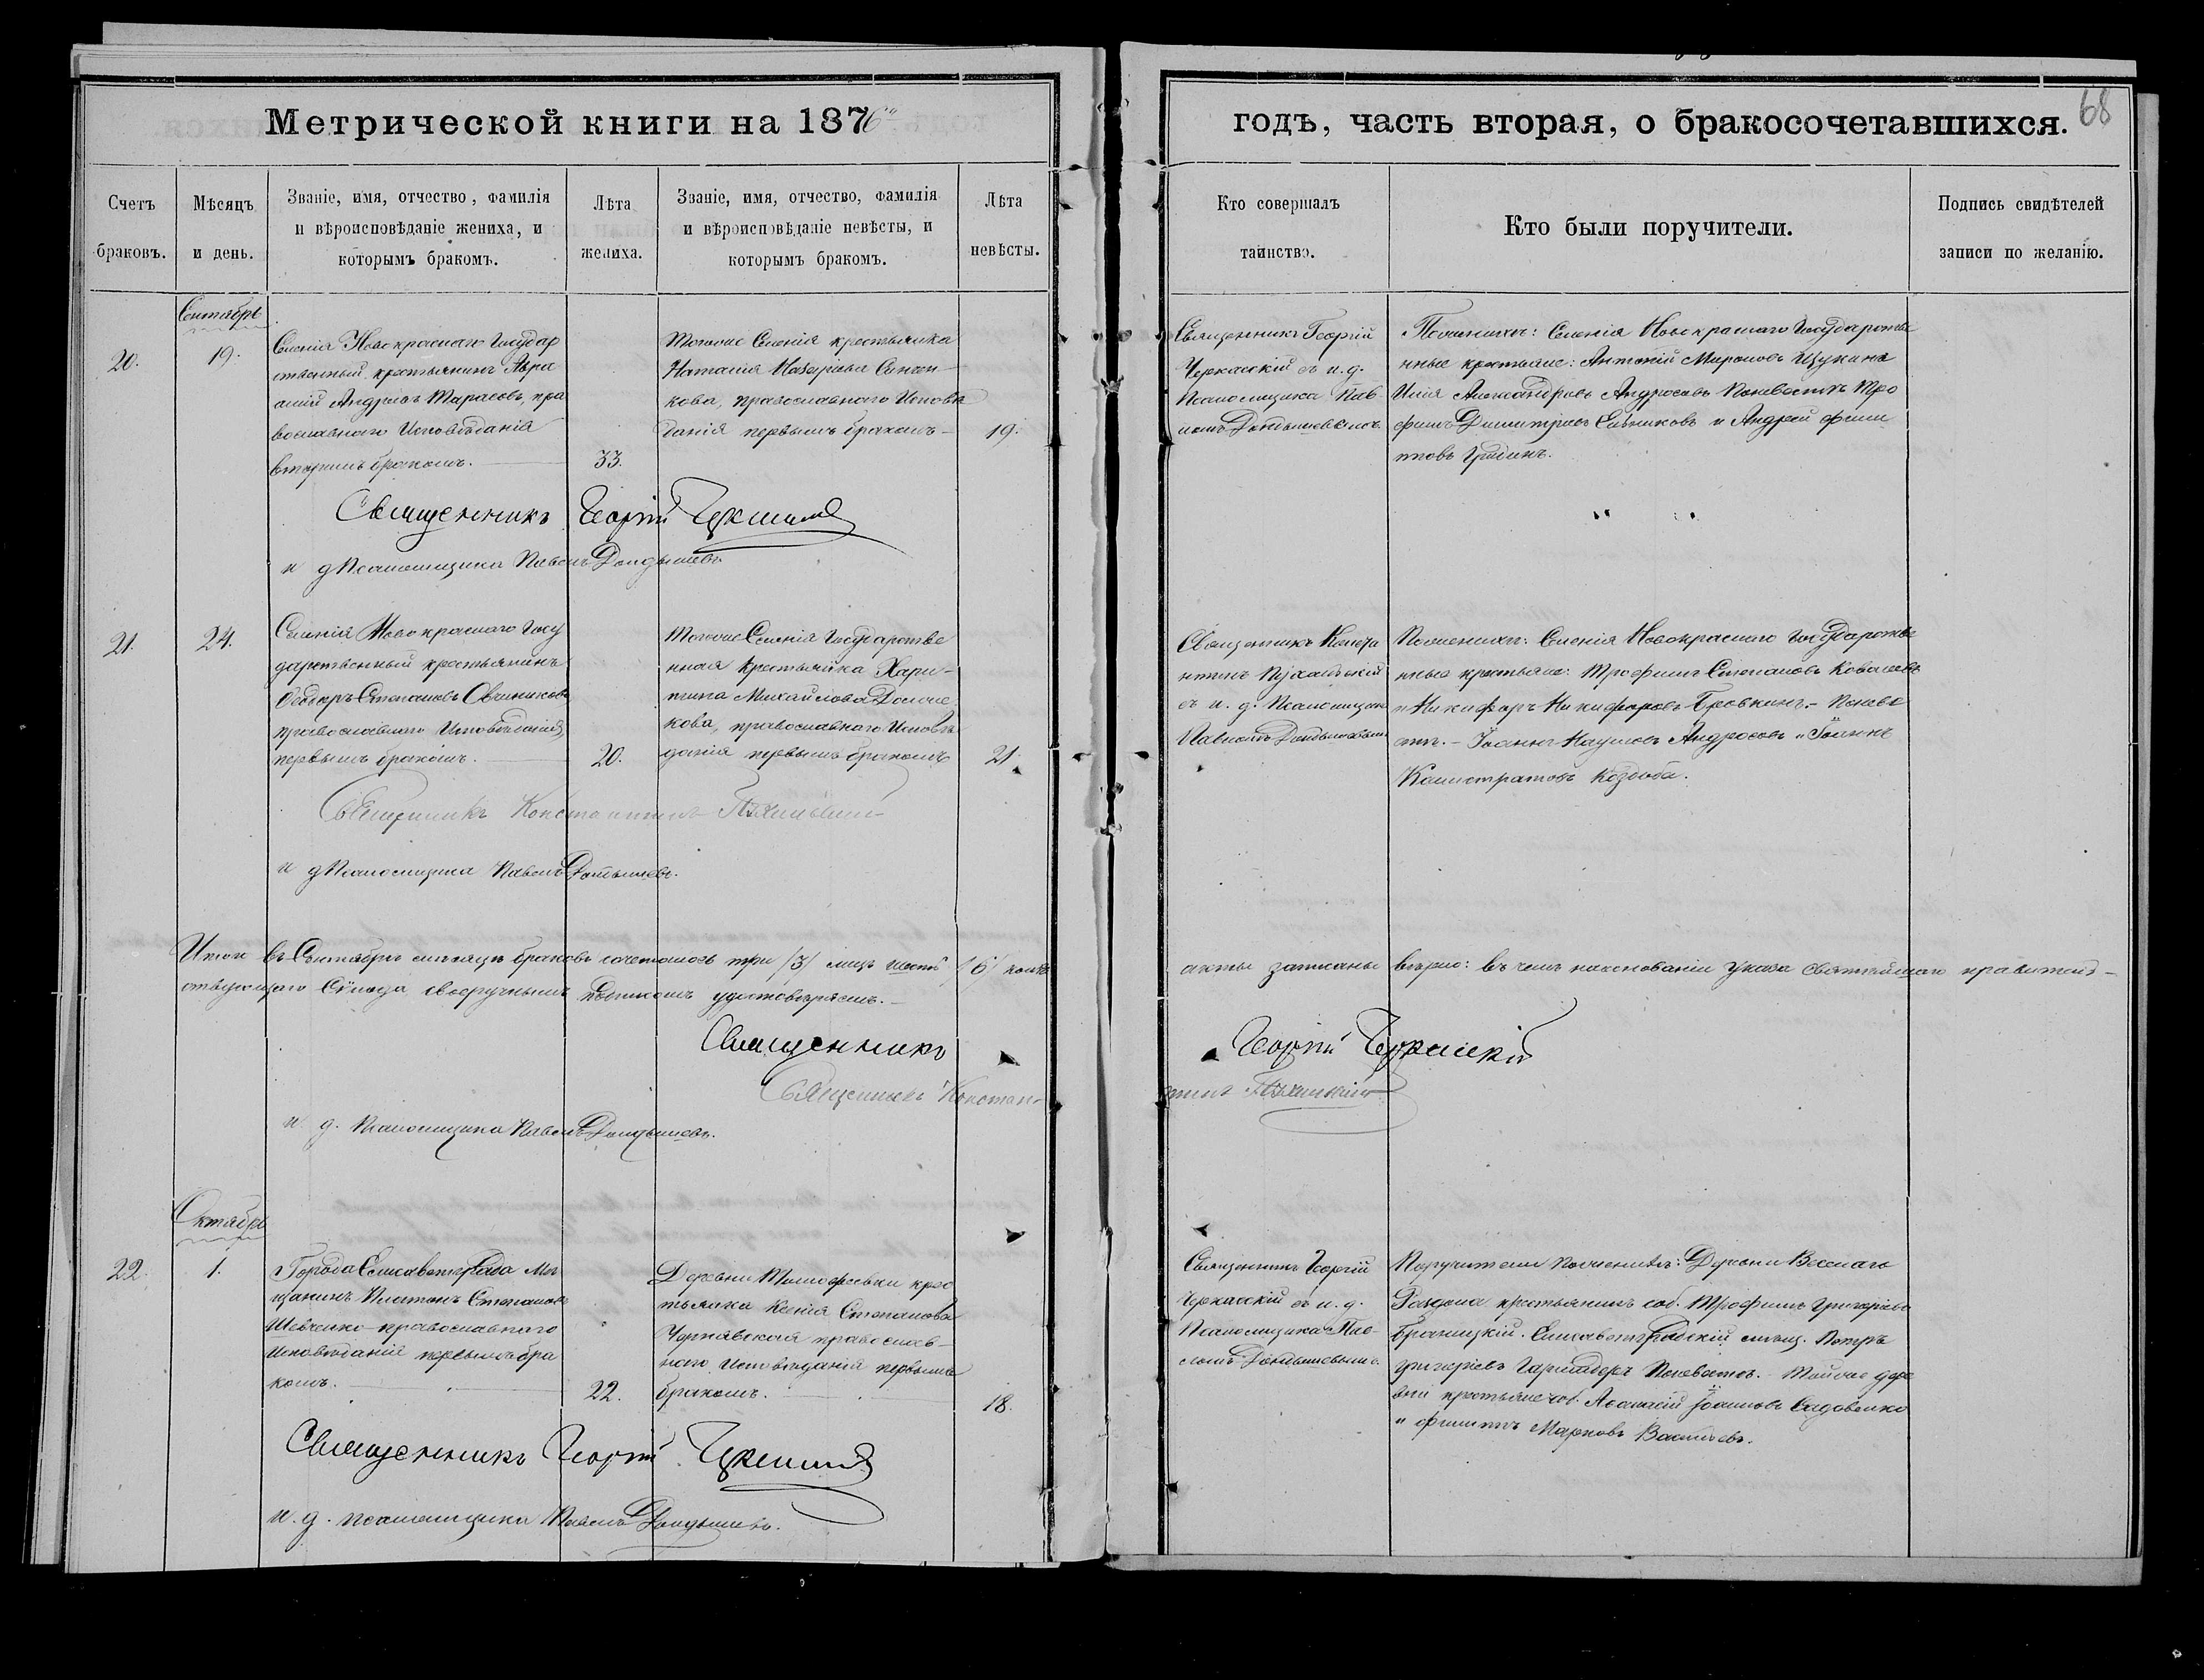 Метрической книги на 1876й
годъ, часть вторая, о бракосочетавшихся.
68
Счетъ браковъ.
Мѣсяцъ и день.
Званіе, имя, отчество, фамилія
и вѣроисповѣданіе жениха, и
которымъ бракомъ.
Лѣта
жениха.
Званіе, имя, отчество, фамилія
и вѣроисповѣданіе невѣсты, и
которымъ бракомъ.
Лѣта
невѣсты.
Кто совершалъ
таинство.
Кто были поручители.
Подпись свидѣтелей
записи по желанію.
Сентябрь
20.
19.
Селенія Новокраснаго Государ
ственный крестьянинъ
Андреевъ Тарасовъ, пра
вославнаго Исповѣданія
вторымъ бракомъ.
33.
Тогоже Селенія крестьянка
Наталія Назарьева
кова, православнаго Исповѣ
данія первымъ бракомъ
19.
Священникъ Георгій
Черкасскій съ и. д.
Псаломщика Пав
ломъ
По женихѣ: Селенія Новокраснаго Государстве
нные крестьяне: Антоній Мироновъ Щукинъ
Илія Александровъ Андросовъ По невѣстѣ Тро
фимъ Димитріевъ и Андрей Фили
повъ
Священникъ Георгій
и д Псаломщика Павелъ
21.
24.
Селенія Новокраснаго Госу
дарственный крестьянинъ
Ѳеодоръ Степановъ Овчинниковъ
православнаго Исповѣданія,
первымъ бракомъ.
20.
Тогоже Селенія Государстве
нная Крестьянка Хари-
тина Михайлова
кова, православнаго Исповѣ
данія первымъ бракомъ
21.
Священникъ Конста
нтинъ
съ и. д. Псаломщика
Павломъ
По женихѣ: Селенія Новокраснаго Государстве
нные крестьяне: Трофимъ Степановъ Ковалевъ
и Никифоръ Никифоровъ Бровкинъ. - По невѣ
стѣ. - Іоаннъ Наумовъ Андросовъ и Іоаннъ
Калистратовъ
Священникъ Константинъ
и д Псаломщика Павелъ
Итого въ Сентябрѣ мѣсяцѣ браковъ сочеталось три /3/ лицъ шесть /6/
акты записаны вѣрно: въ чемъ на основаніи Указа Святѣйшаго правитель-
ствующаго Сѵнода своеручнымъ удостовѣряемъ.
Священникъ Георгій Черкасскій
Священникъ Константинъ
и. д. Псаломщика Павелъ
Октябрь
22.
1.
Города Елисаветграда Мѣ
щанинъ Платонъ Степановъ
Шевченко православнаго
Исповѣданія первымъ бра
комъ.
22.
Деревни Тимофеевки крес
тьянка Ксенія Степанова
Чернявская православ-
наго исповѣданія первымъ
бракомъ.
18.
Священникъ Георгій
Черкасскій съ и. д.
Псаломщика Пав-
ломъ
Поручители по женихѣ: Деревни Веселаго
Раздола крестьянинъ соб. Трофимъ Григорьевъ
Браницкій. Елисаветградскій мѣщ. Петръ
Григорьевъ По невѣстѣ. - Той же дере
вни крестьяне соб. Аѳанасій Іоанновъ Садовенко
и Филиппъ Марковъ Васильевъ.
Священникъ Георгій
и. д. псаломщика Павелъ